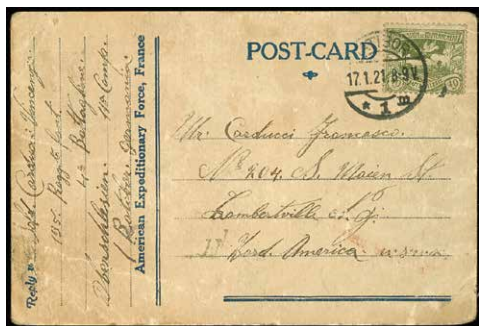 POST-CARD
RATIBOR
17.1.21.8-9V.
* 1 m
40
Mr. Carducci Francesco.
No 204. S. Main St.
Lambertville N. J.
Nord. America
Reply to Sold. Carducci Vincenzo
135. Regg. Fant
4o Battaglione. 11o Comp.
Oberschlesien.
Ratibor. Germania
American Expeditionary Force, France